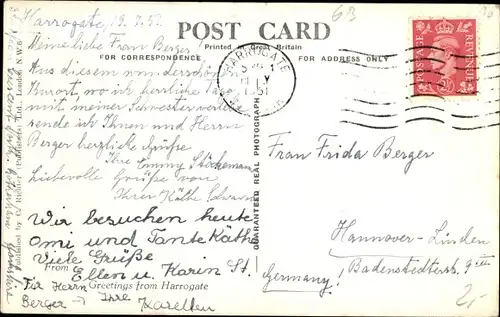 Harrogate, 19. 7. 51.
Meine liebe Frau Berger!
Aus diesem wunderschönen
Kurort, wo ich herrliche Tage
mit meiner Schwester verlebe
sende ich Ihnen und Herrn
Berger herzliche Grüße
Ihre Emmy
Liebevolle Grüße von
Ihrer Käthe
Wir besuchen heute
Omi und Tante Käthe
Viele Grüße
Ellen u. Karin St.
Für Herrn
Berger → Ihre
Karellen
From
Greetings from Harrogate
POST CARD
Printed in Great Britain
FOR CORRESPONDENCE
FOR ADDRESS ONLY
GUARANTEED REAL PHOTOGRAPH
London, N.W.6
HARROGATE
1951
POSTAGE
REVENUE
Frau Frida Berger
Hannover-Linden
Badenstedterstr. 9 III
Germany!
63
2,-